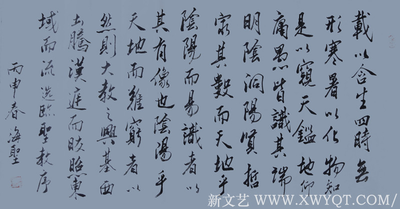 載以含生四時無
形寒暑以化物知
是以窺天鑑地仰
庸愚皆識其端
明陰洞陽賢哲
窮其數而天地乎
陰陽而易識者以
其有像也陰陽乎
天地而難窮者以
然則大教之興基西
土騰漢庭而皎照東
域而流慈臨聖教序
丙申春海聖
新文艺（www.XWYQT.com）